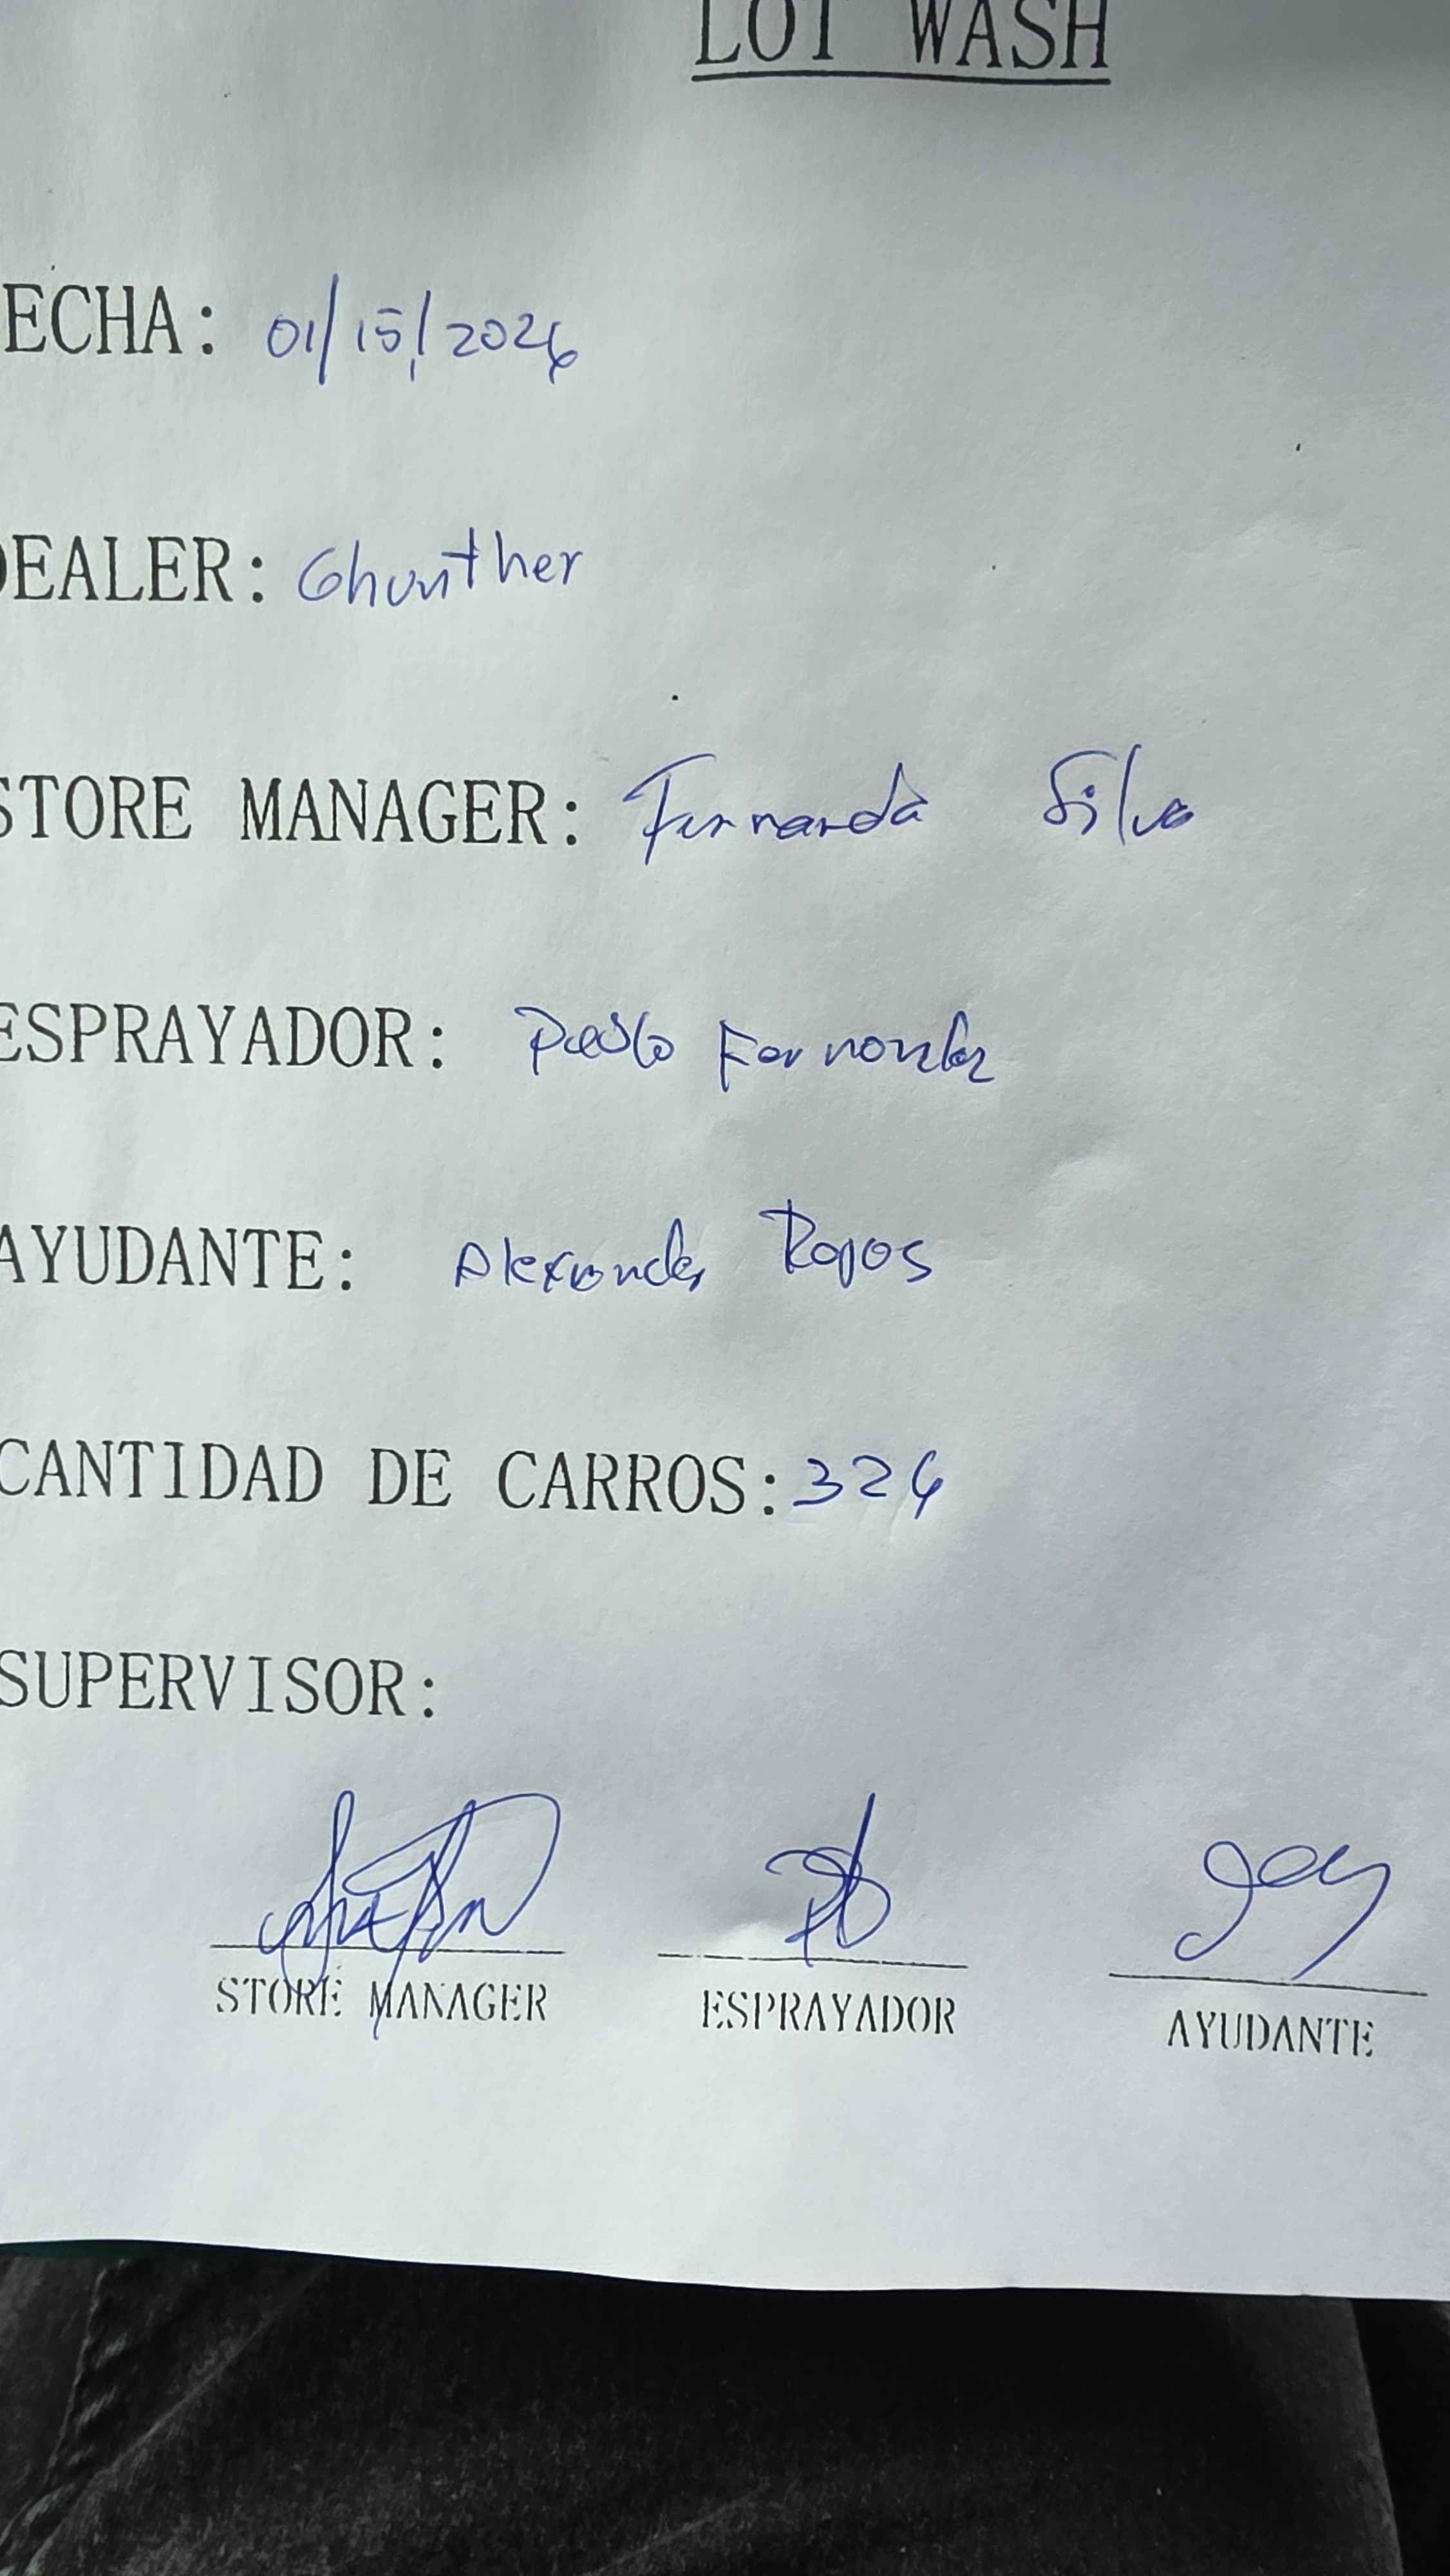 LOT WASH
ECHA: 01/15/2026
DEALER: Ghunther
STORE MANAGER: Fernanda Silva
ESPRAYADOR: Pablo Fernandez
AYUDANTE: Alexander Rojas
CANTIDAD DE CARROS: 324
SUPERVISOR:
STORE MANAGER ESPRAYADOR AYUDANTE